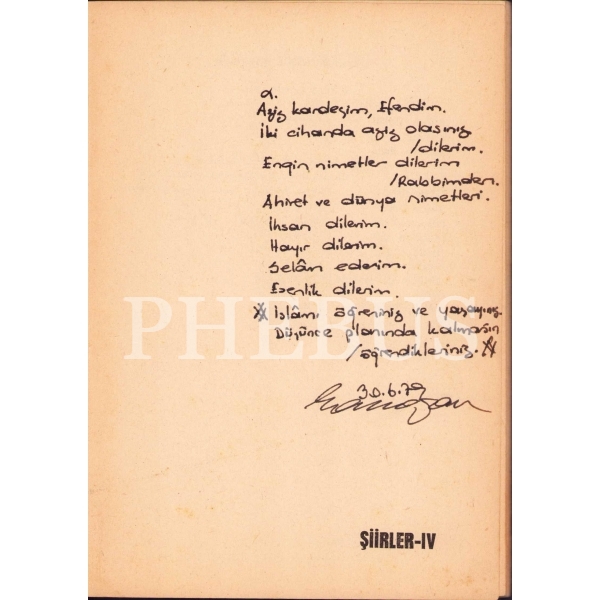 α.
Aziz kardeşim, Efendim.
İki cihanda aziz olasınız
/dilerim.
Engin nimetler dilerim
/Rabbimden.
Ahiret ve dünya nimetleri.
İhsan dilerim.
Hayır dilerim.
Selâm ederim.
Esenlik dilerim.
İslâmı öğreniniz ve yaşayınız.
Düşünce planında kalmasın
/öğrendikleriniz.
30.6.79
PHEBUS
ŞİİRLER-IV